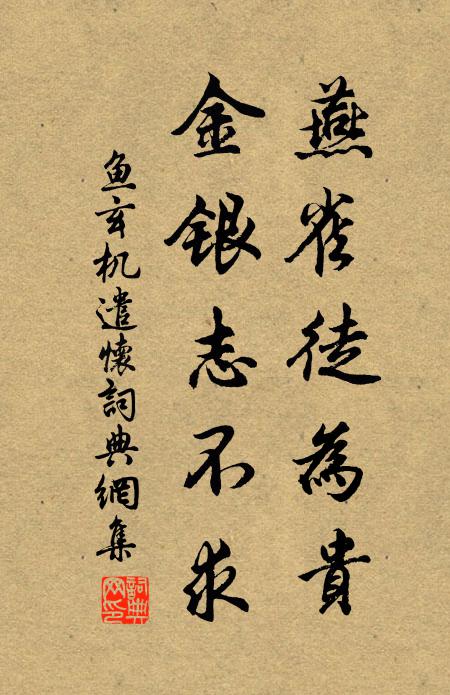 燕雀徒為貴
金銀志不求
鱼玄机遣懷詞典網集
詞典
网印